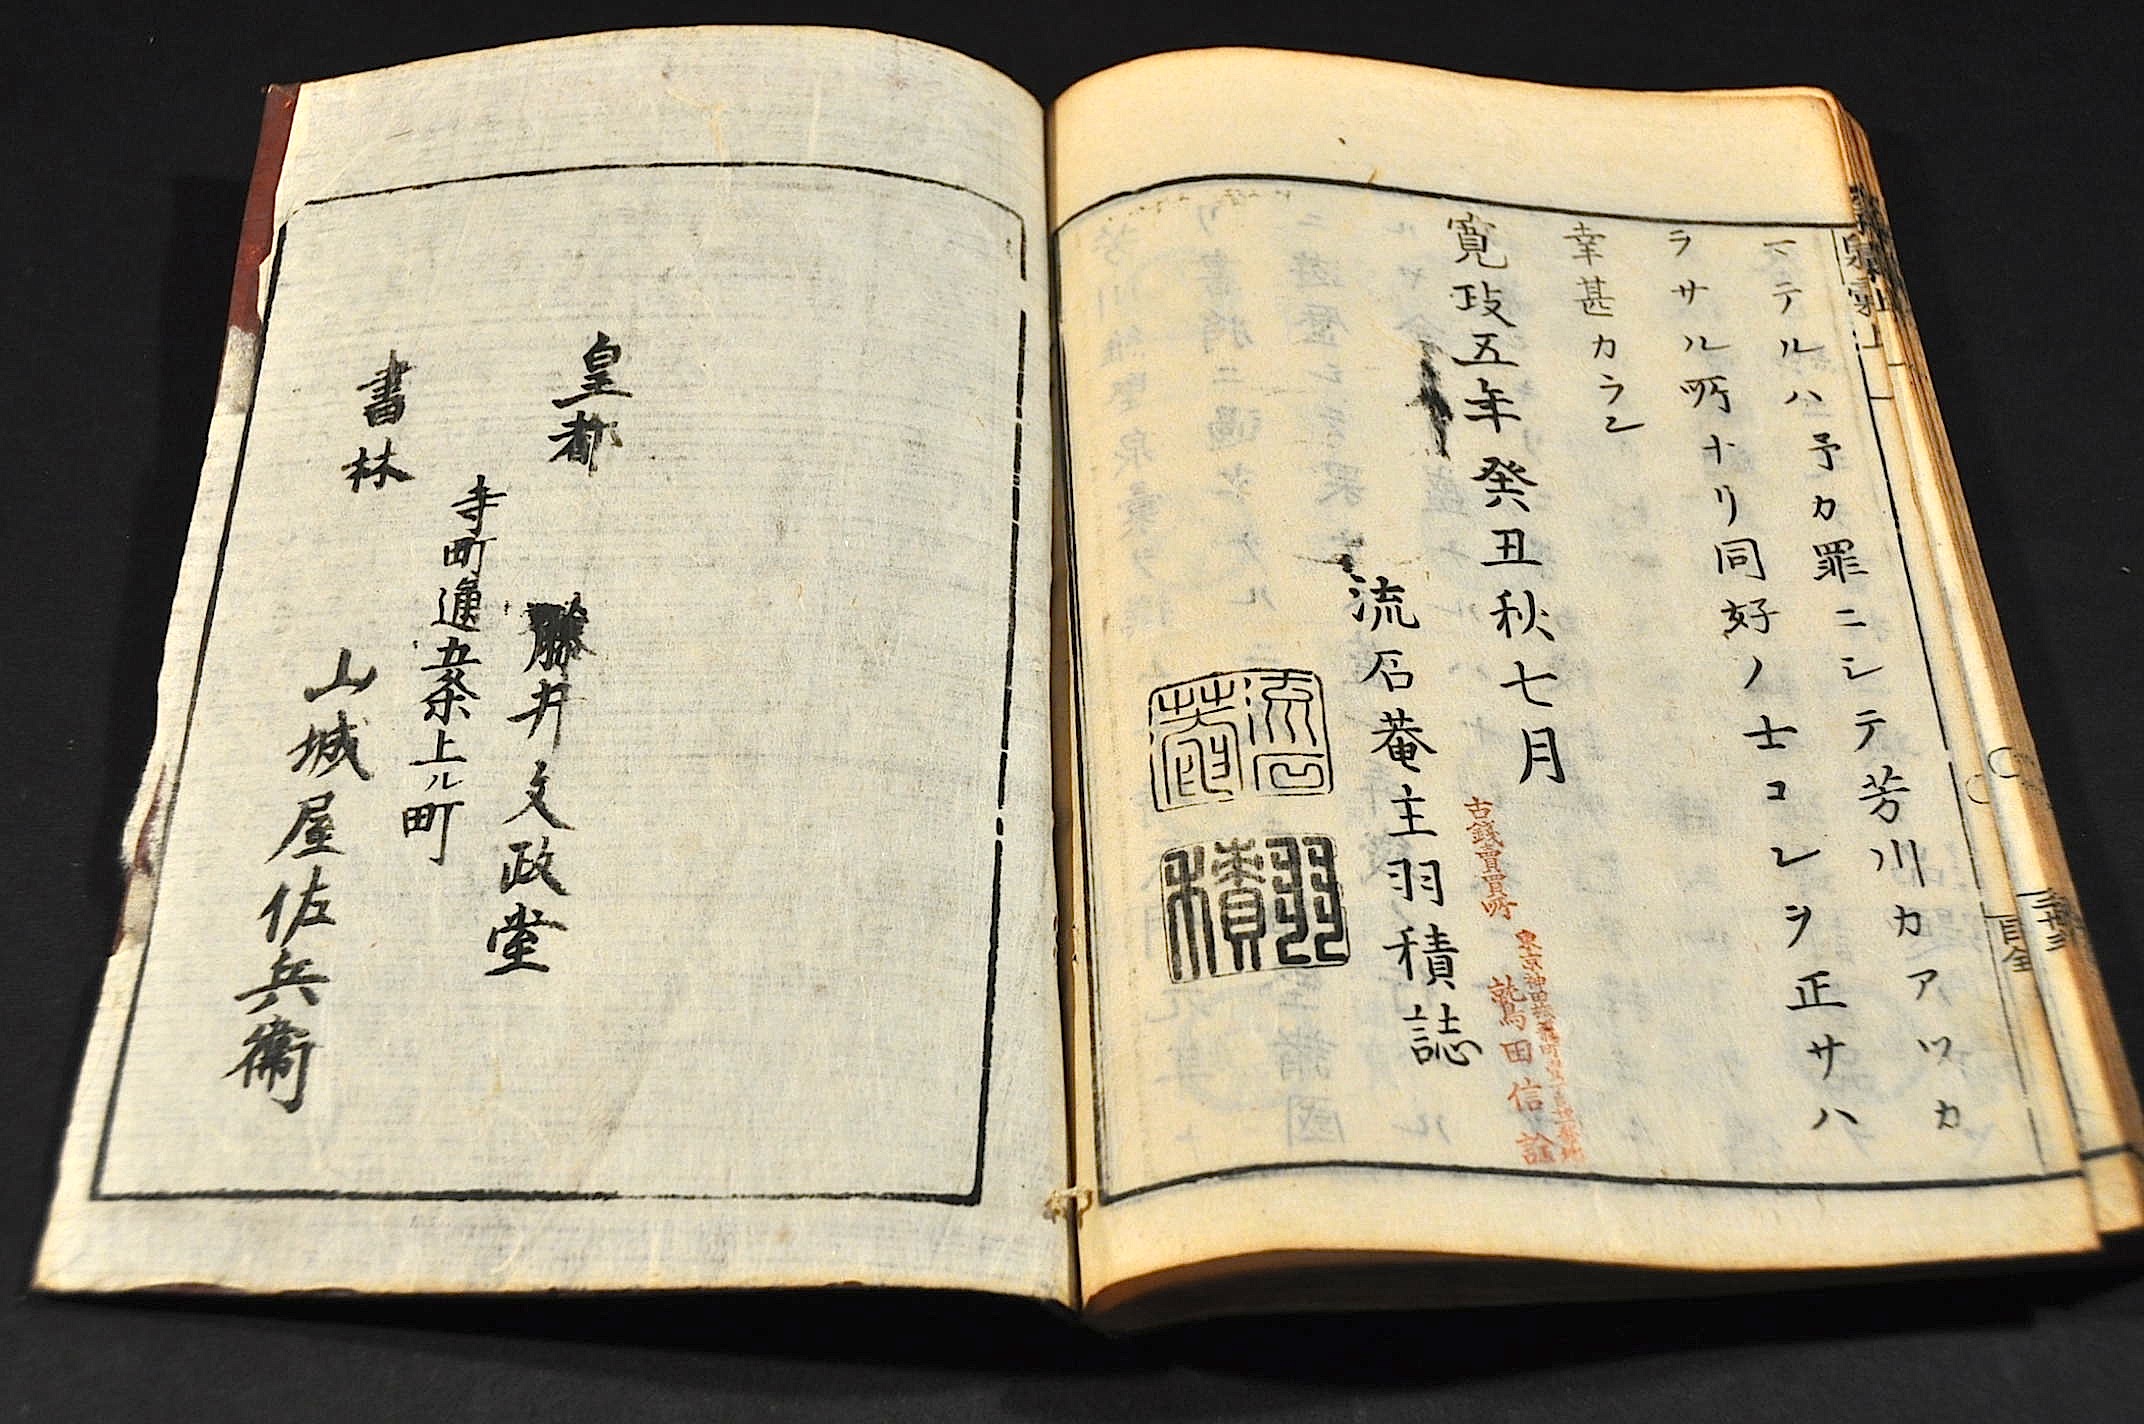 マテルハ予カ罪ニシテ芳川カアツカ
ラサル所ナリ同好ノ士コレヲ正サハ
幸甚カラン
寛政五年癸丑秋七月
流石菴主羽積誌
流石菴
羽積
古錢賣買所
鷲田信
皇都
勝井文政堂
寺町通五条上ル町
書林
山城屋佐兵衛